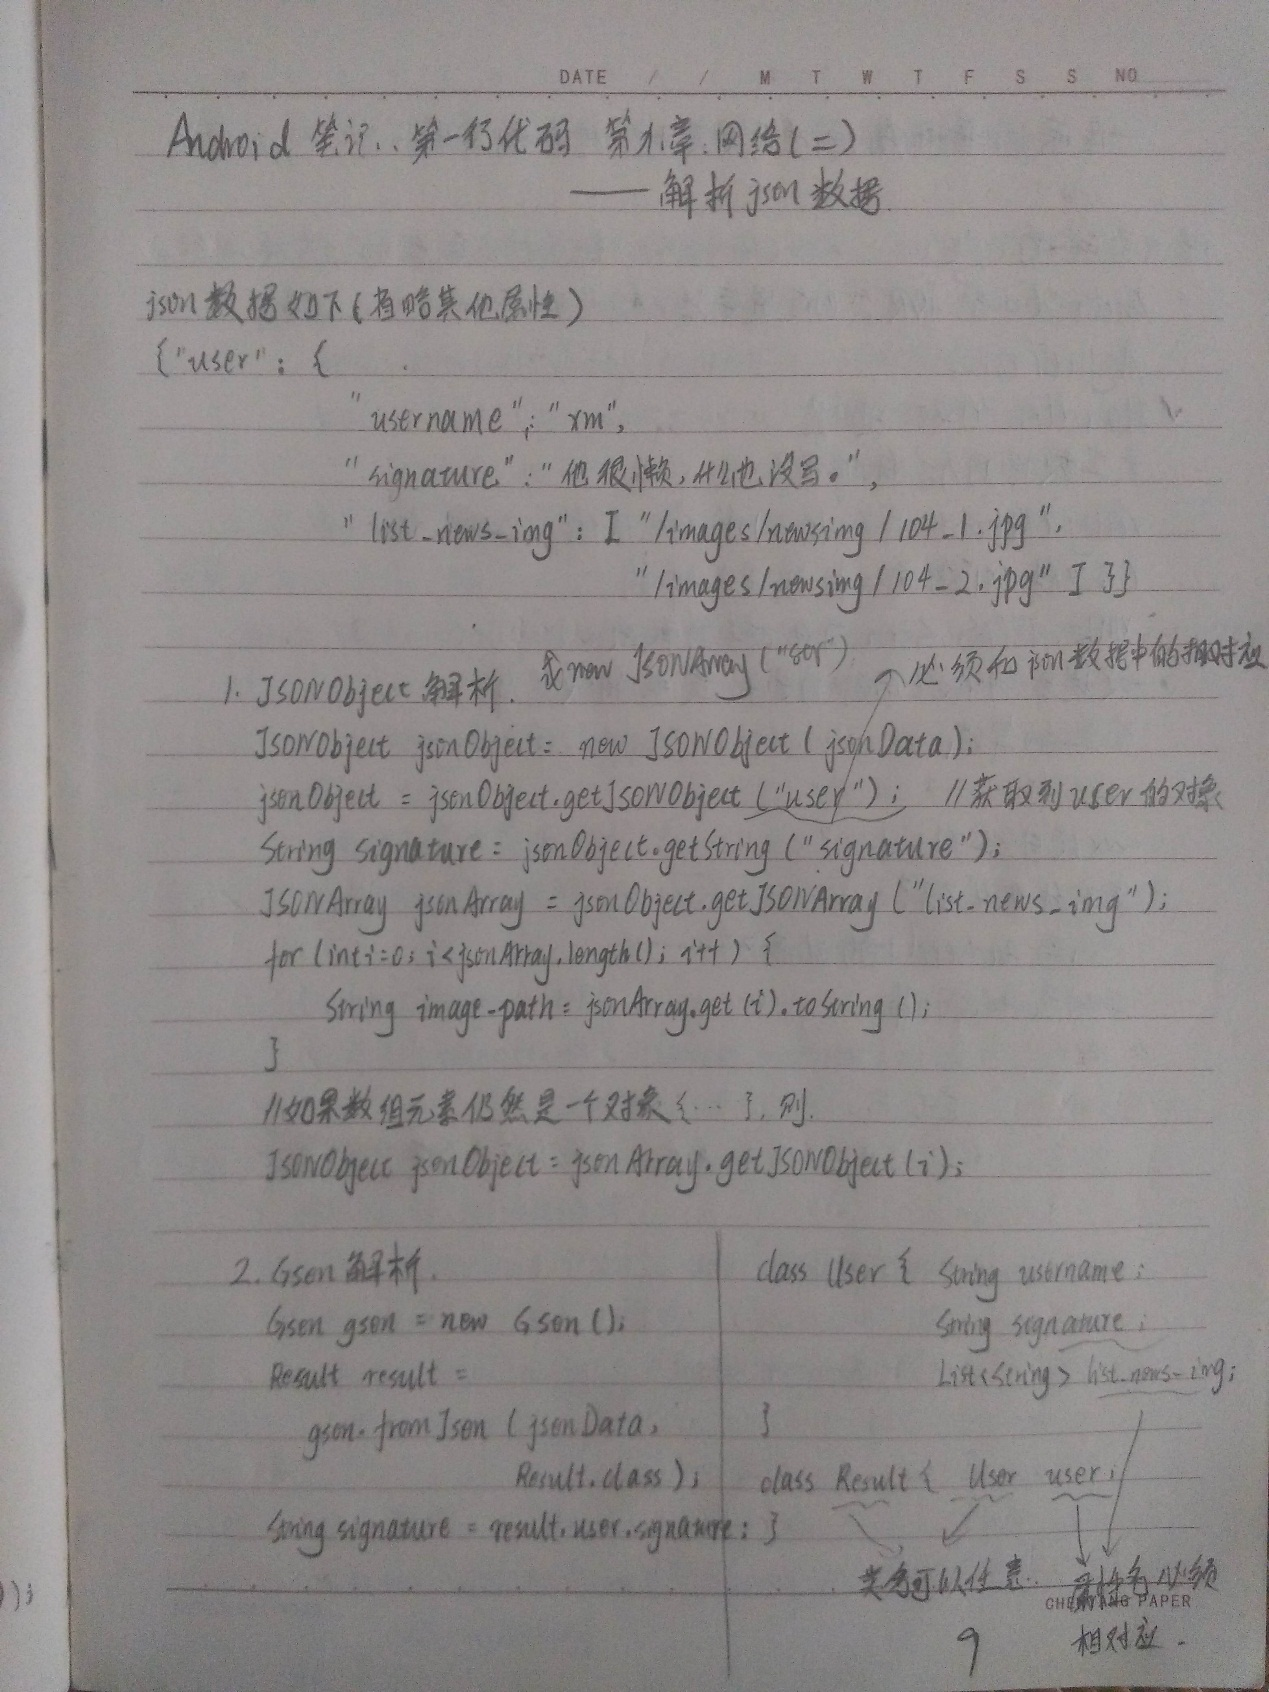 DATE / / M T W T F S S NO
Android 笔记..第一行代码 第九章.网络(二)
——解析json数据
json数据如下(省略其他属性)
{"user": {
"username": "xm",
"signature": "他很懒,什么也没写。",
"list_news_img": [ "/images/newsimg/104_1.jpg",
"/images/newsimg/104_2.jpg" ] }}
1. JSONObject 解析. 或new JSONArray("str") 必须和json数据中的相对应
JSONObject jsonObject = new JSONObject(jsonData);
jsonObject = jsonObject.getJSONObject("user"); //获取到user的对象
String signature = jsonObject.getString("signature");
JSONArray jsonArray = jsonObject.getJSONArray("list_news_img");
for (int i=0; i<jsonArray.length(); i++) {
String image-path = jsonArray.get(i).toString();
}
//如果数组元素仍然是一个对象{…},则.
JSONObject jsonObject = jsonArray.getJSONObject(i);
2. Gson 解析.
Gson gson = new Gson();
Result result =
gson.fromJson(jsonData,
Result.class);
String signature = result.user.signature;
class User { String username;
String signature;
List<String> list_news_img;
}
class Result { User user;
}
类名可以任意.
属性名必须
相对应.
CHENYANG PAPER
9
);